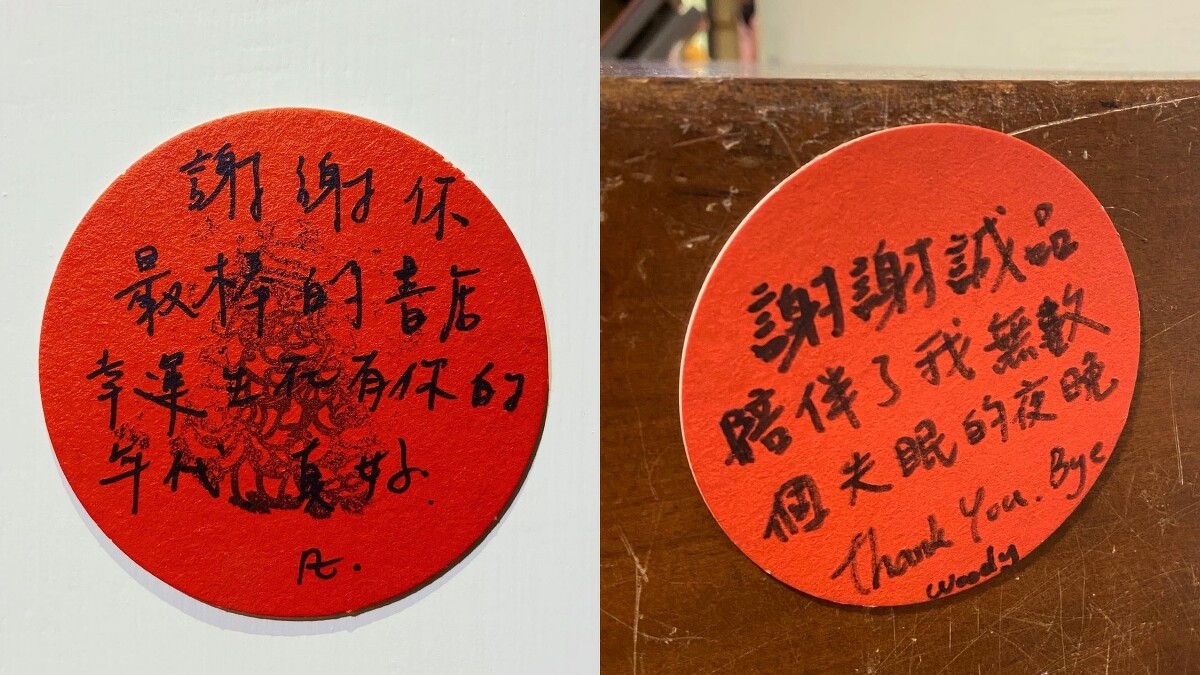 謝謝你
最棒的書店
幸運生在有你的
年代 真好.
謝謝誠品
陪伴了我無數
個失眠的夜晚
Thank You. Bye
Woody